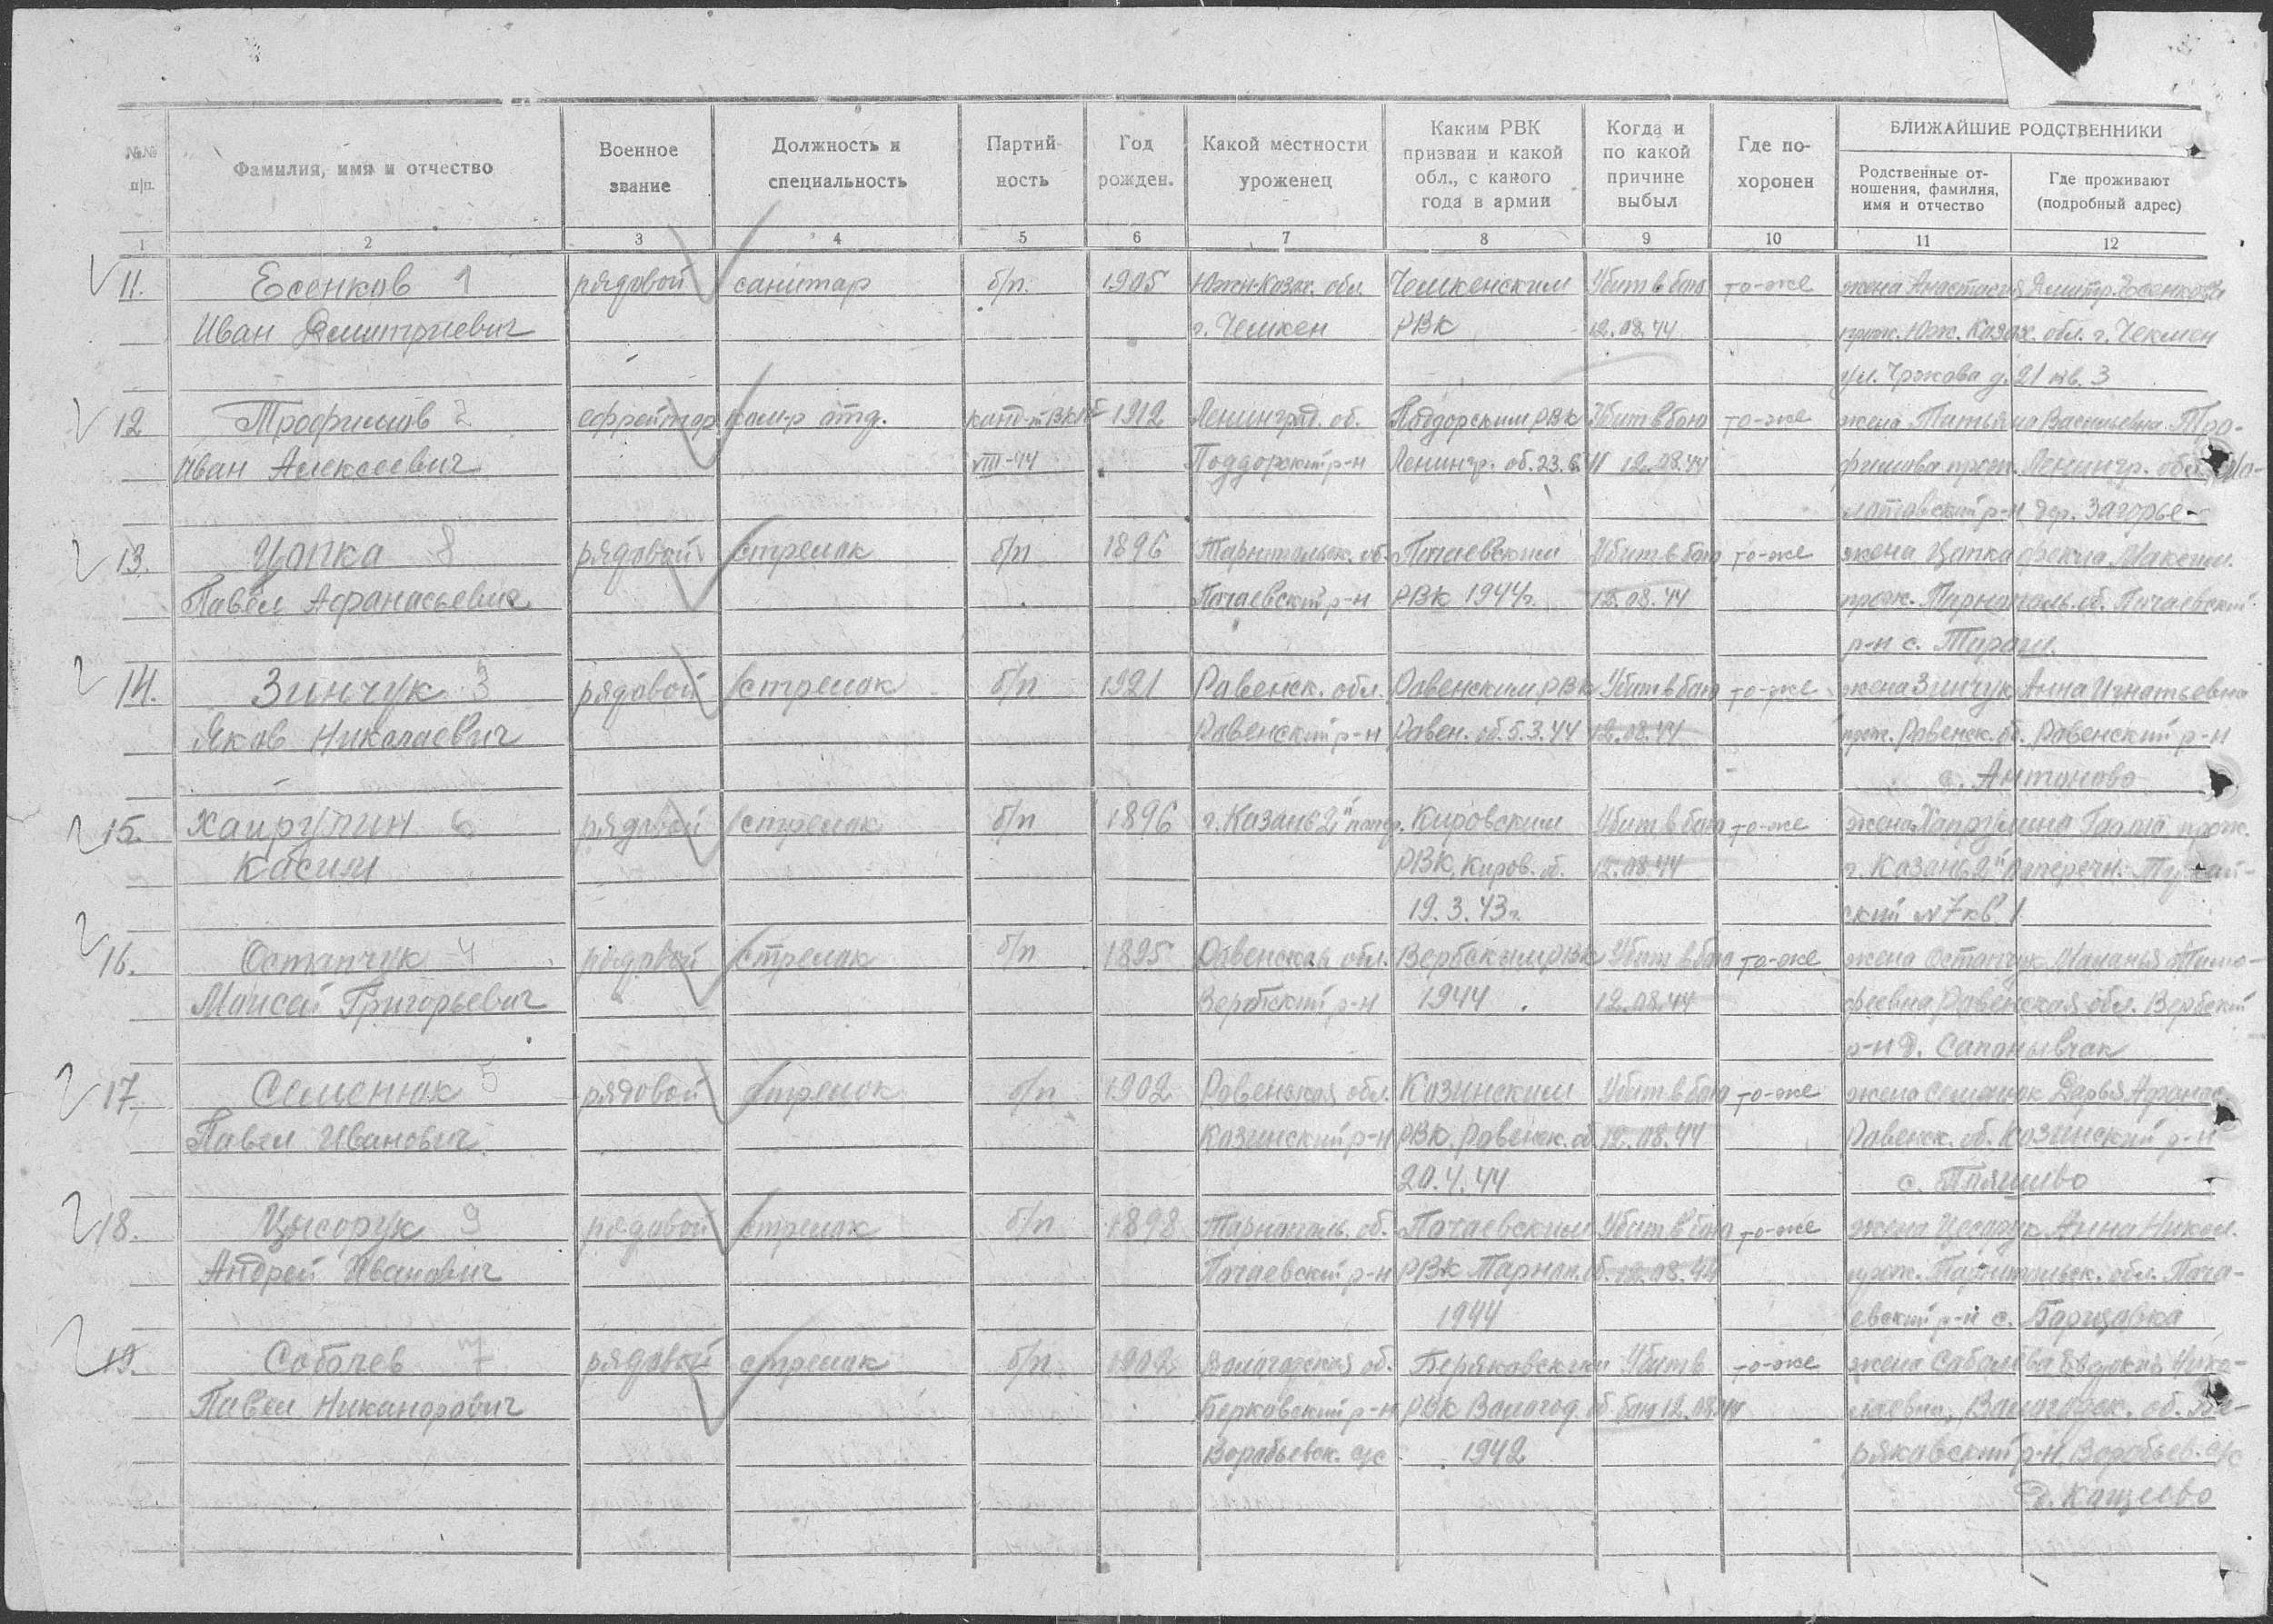 №№ п/п.
Фамилия, имя и отчество
Военное звание
Должность и специальность
Партий- ность
Год рожден.
Какой местности уроженец
Каким РВК призван и какой обл., с какого года в армии
Когда и по какой причине выбыл
Где по- хоронен
БЛИЖАЙШИЕ РОДСТВЕННИКИ
Родственные от- ношения, фамилия, имя и отчество
Где проживают (подробный адрес)
1 2 3 4 5 6 7 8 9 10 11 12
11. Есенков 1 рядовой санитар б/п. 1905 Южн-Казах. обл. Чемкенским Убит в бою то-же жена Анастасия Дмитр. Есенкова
Иван Дмитриевич г. Чемкен РВК 12.08.44 прож. Юж. Казах. обл. г. Чекмен
ул. Чрокова д. 21 кв. 3
12 Трофимов 2 ефрейтор ком-р отд. канд-т ВКПб 1912 Ленинград. об. Поддорским РВК Убит в бою то-же жена Татьяна Васильевна Тро-
Иван Алексеевич VIII-44 Поддорский р-н Ленингр. об. 23.6.41 12.08.44 фимова прож. Ленингр. обл.
р-н дер. Загорье
13. Цапка 8 рядовой стрелок б/п 1896 Тарнопольск. об. Почаевским Убит в бою то-же жена Цапка Фекла Максим.
Павел Афанасьевич Почаевский р-н РВК 1944г. 12.08.44 прож. Тарнополь. об. Почаевский
р-н с. Тараж
14. Зинчук 3 рядовой стрелок б/п 1921 Равенск. обл. Равенским РВК Убит в бою то-же жена Зинчук Анна Игнатьевна
Яков Николаевич Равенский р-н Равен. об. 5.3.44 12.08.44 прож. Равенск. об. Равенский р-н
с. Антоново
15. Хайрулин 6 рядовой стрелок б/п 1896 г. Казань 2й попер. Кировским Убит в бою то-же жена Хайрулина прож.
Касим РВК, Киров. об. 12.08.44 г. Казань 2й поперечн.
19.3.43г. ский №7 кв. 1
16. Остапчук 4 рядовой стрелок б/п 1895 Равенская обл. Вербским РВК Убит в бою то-же жена Остапчук Маланья Тимо-
Моисей Григорьевич Вербский р-н 1944 12.08.44 феевна Равенская обл. Вербский
р-н д.
17. Семенюк 5 рядовой стрелок б/п 1902 Равенская обл. Козинским Убит в бою то-же жена Семенюк Дарья Афанас.
Павел Иванович Козинский р-н РВК, Равенск. об. 12.08.44 Равенск. об. Козинский р-н
20.4.44 с. Пляшиво
18. Цысорук 9 рядовой стрелок б/п 1898 Тарнополь. об. Почаевским Убит в бою то-же жена Цысорук Анна Никол.
Андрей Иванович Почаевский р-н РВК Тарноп. об. 12.08.44 прож. Тарнопольск. обл. Поча-
1944 евский р-н с. Борщовка
19. Соболев 7 рядовой стрелок б/п. 1902 Вологодская об. Биряковским Убит в то-же жена Соболева Евдокия Нико-
Павел Никанорович Берковский р-н РВК Вологод. об. бою 12.08.44 лаевна, Вологодск. об. Би-
Воробьевск. с/с 1942 ряковский р-н, Воробьев. с/с
д. Кощеево